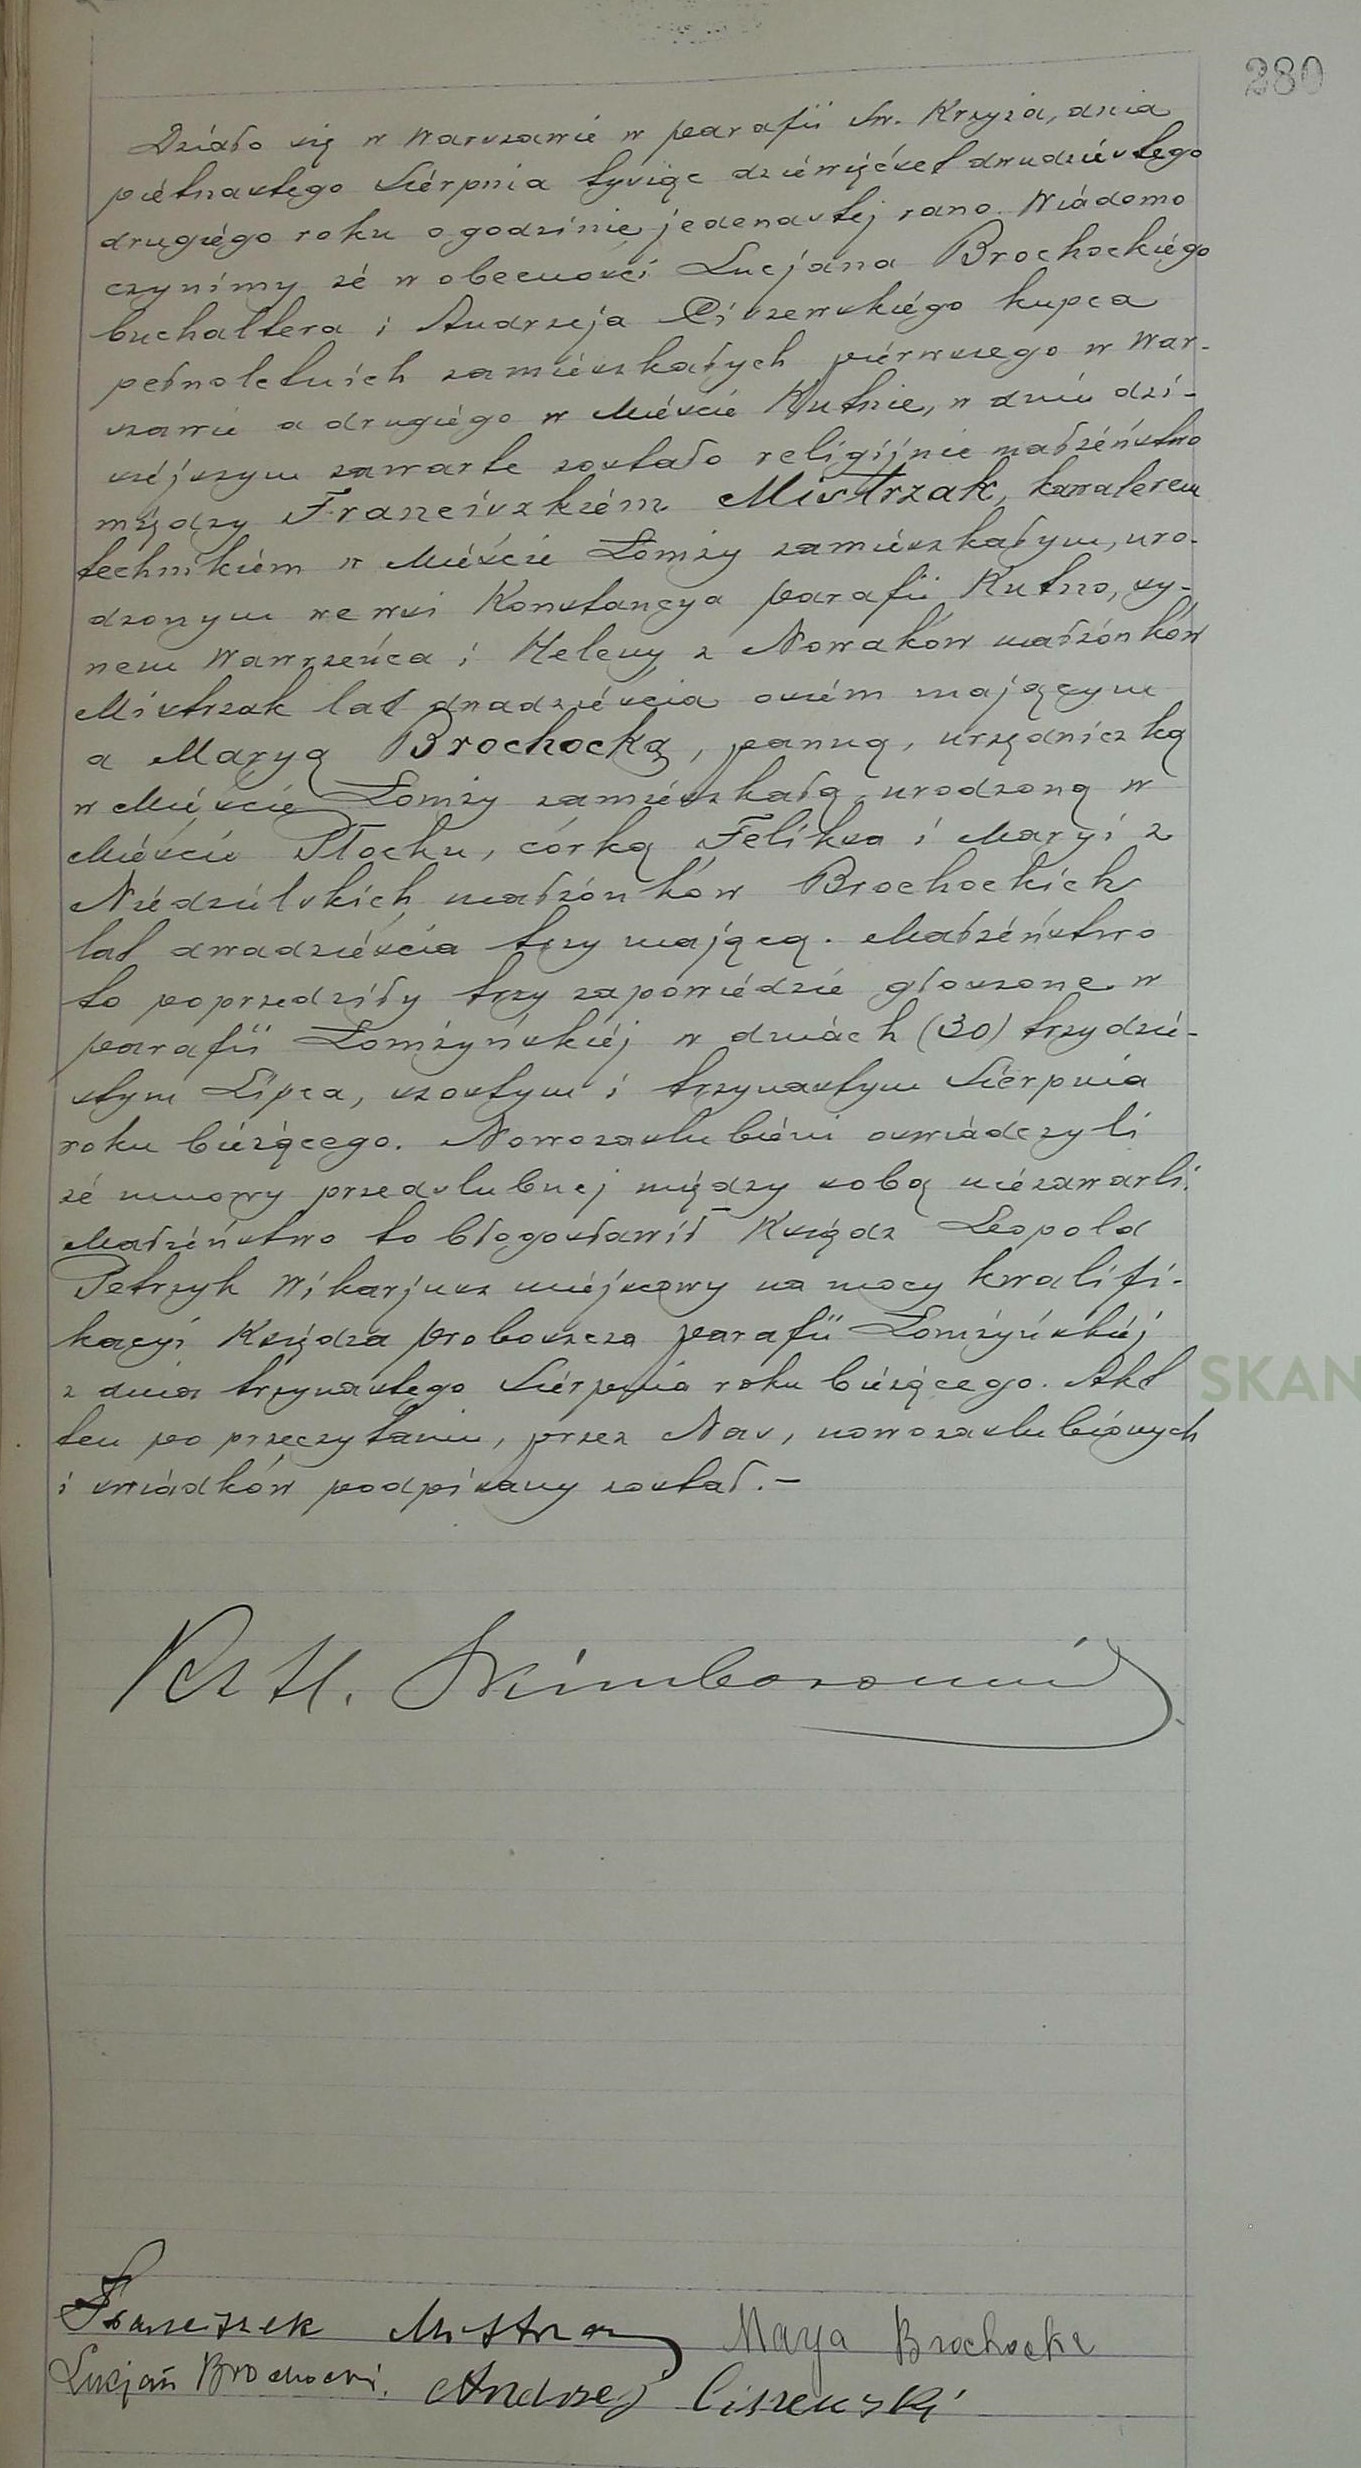 280
Działo się w Warszawie w parafii Św. Krzyża, dnia
piętnastego Sierpnia tysiąc dziewięćset dwudziestego
drugiego roku o godzinie jedenastej rano. Wiadomo
czynimy że w obecności Lucjana Brochockiego
buchaltera i Andrzeja Ciszewskiego kupca
pełnoletnich zamieszkałych pierwszego w War-
szawie a drugiego w Mieście Kutnie, w dniu dzi-
siejszym zawarte zostało religijnie małżeństwo
między Franciszkiem Mistrzak, kawalerem
technikiem w Mieście Łomży zamieszkałym, uro-
dzonym we wsi Konstancya parafii Kutno, sy-
nem Wawrzeńca i Heleny z Nowaków małżonków
Mistrzak lat dwadzieścia osiem mającym
a Maryą Brochocką, panną, urzędniczką
w Mieście Łomży zamieszkałą, urodzoną w
Mieście Płocku, córką Feliksa i Maryi z
Niedzielskich małżonków Brochockich
lat dwadzieścia trzy mającą. Małżeństwo
to poprzedziły trzy zapowiedzie głoszone w
parafii Łomżyńskiej w dniach (30) trzydzie-
stym Lipca, szostym i trzynastym Sierpnia
roku bieżącego. Nowozaslubieni oswiadczyli
że umowy przedslubnej między sobą niezawarli.
Małżeństwo to błogosławił Ksiądz Leopold
Petrzyk Wikarjusz miejscowy na mocy kwalifi-
kacyi Księdza proboszcza parafii Łomżyńskiej
z dnia trzynastego Sierpnia roku bieżącego. Akt
SKAN
ten po przeczytaniu, przez Nas, nowozaslubionych
i swiadków podpisany został. –
Ks H.
Franciszek Mistrzak Marya Brochocka
Lucjan Brochocki. Andrzej Ciszewski